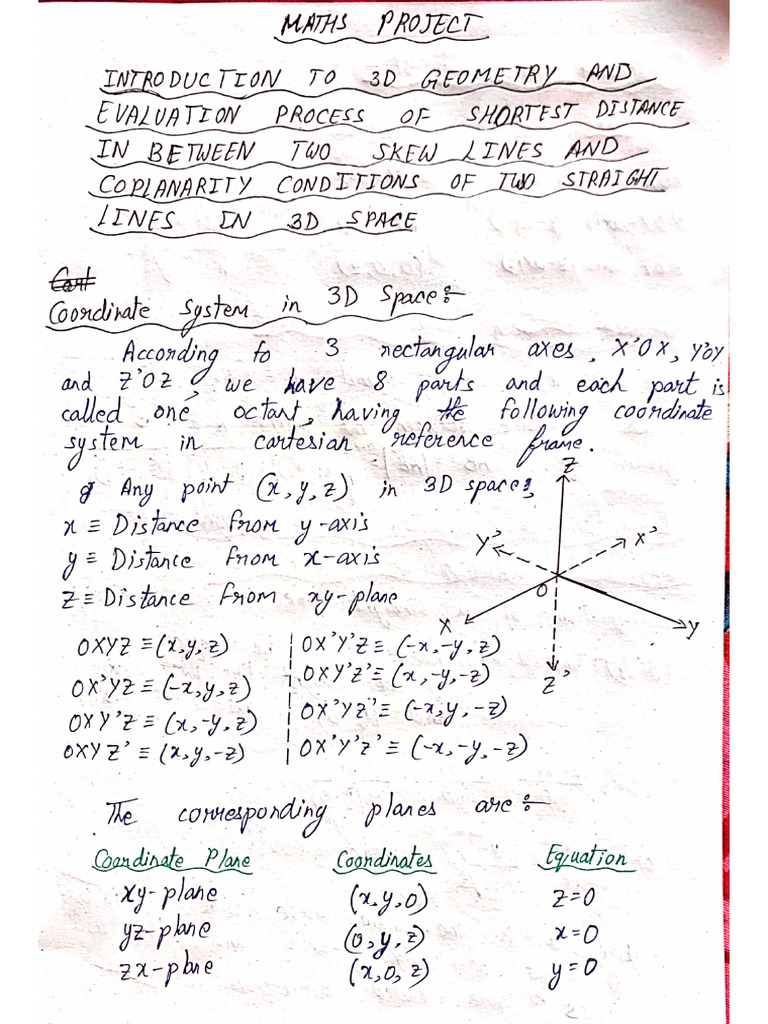 MATHS PROJECT
INTRODUCTION TO 3D GEOMETRY AND
EVALUATION PROCESS OF SHORTEST DISTANCE
IN BETWEEN TWO SKEW LINES AND
COPLANARITY CONDITIONS OF TWO STRAIGHT
LINES IN 3D SPACE
Coordinate System in 3D Space:-
According to 3 rectangular axes, X'OX, Y'OY
and Z'OZ, we have 8 parts and each part is
called one octant, having the following coordinate
system in cartesian reference frame.
Any point (x, y, z) in 3D space,
x ≡ Distance from y-axis
y ≡ Distance from x-axis
z ≡ Distance from xy-plane
Z
Y'
X'
O
X
Y
Z'
OXYZ ≡ (x,y,z)
OX'YZ ≡ (-x,y,z)
OXY'Z ≡ (x,-y,z)
OXYZ' ≡ (x,y,-z)
OX'Y'Z ≡ (-x,-y,z)
OXY'Z' ≡ (x,-y,-z)
OX'YZ' ≡ (-x,y,-z)
OX'Y'Z' ≡ (-x,-y,-z)
The corresponding planes are:-
Coordinate Plane Coordinates Equation
xy-plane (x,y,0) z=0
yz-plane (0,y,z) x=0
zx-plane (x,0,z) y=0